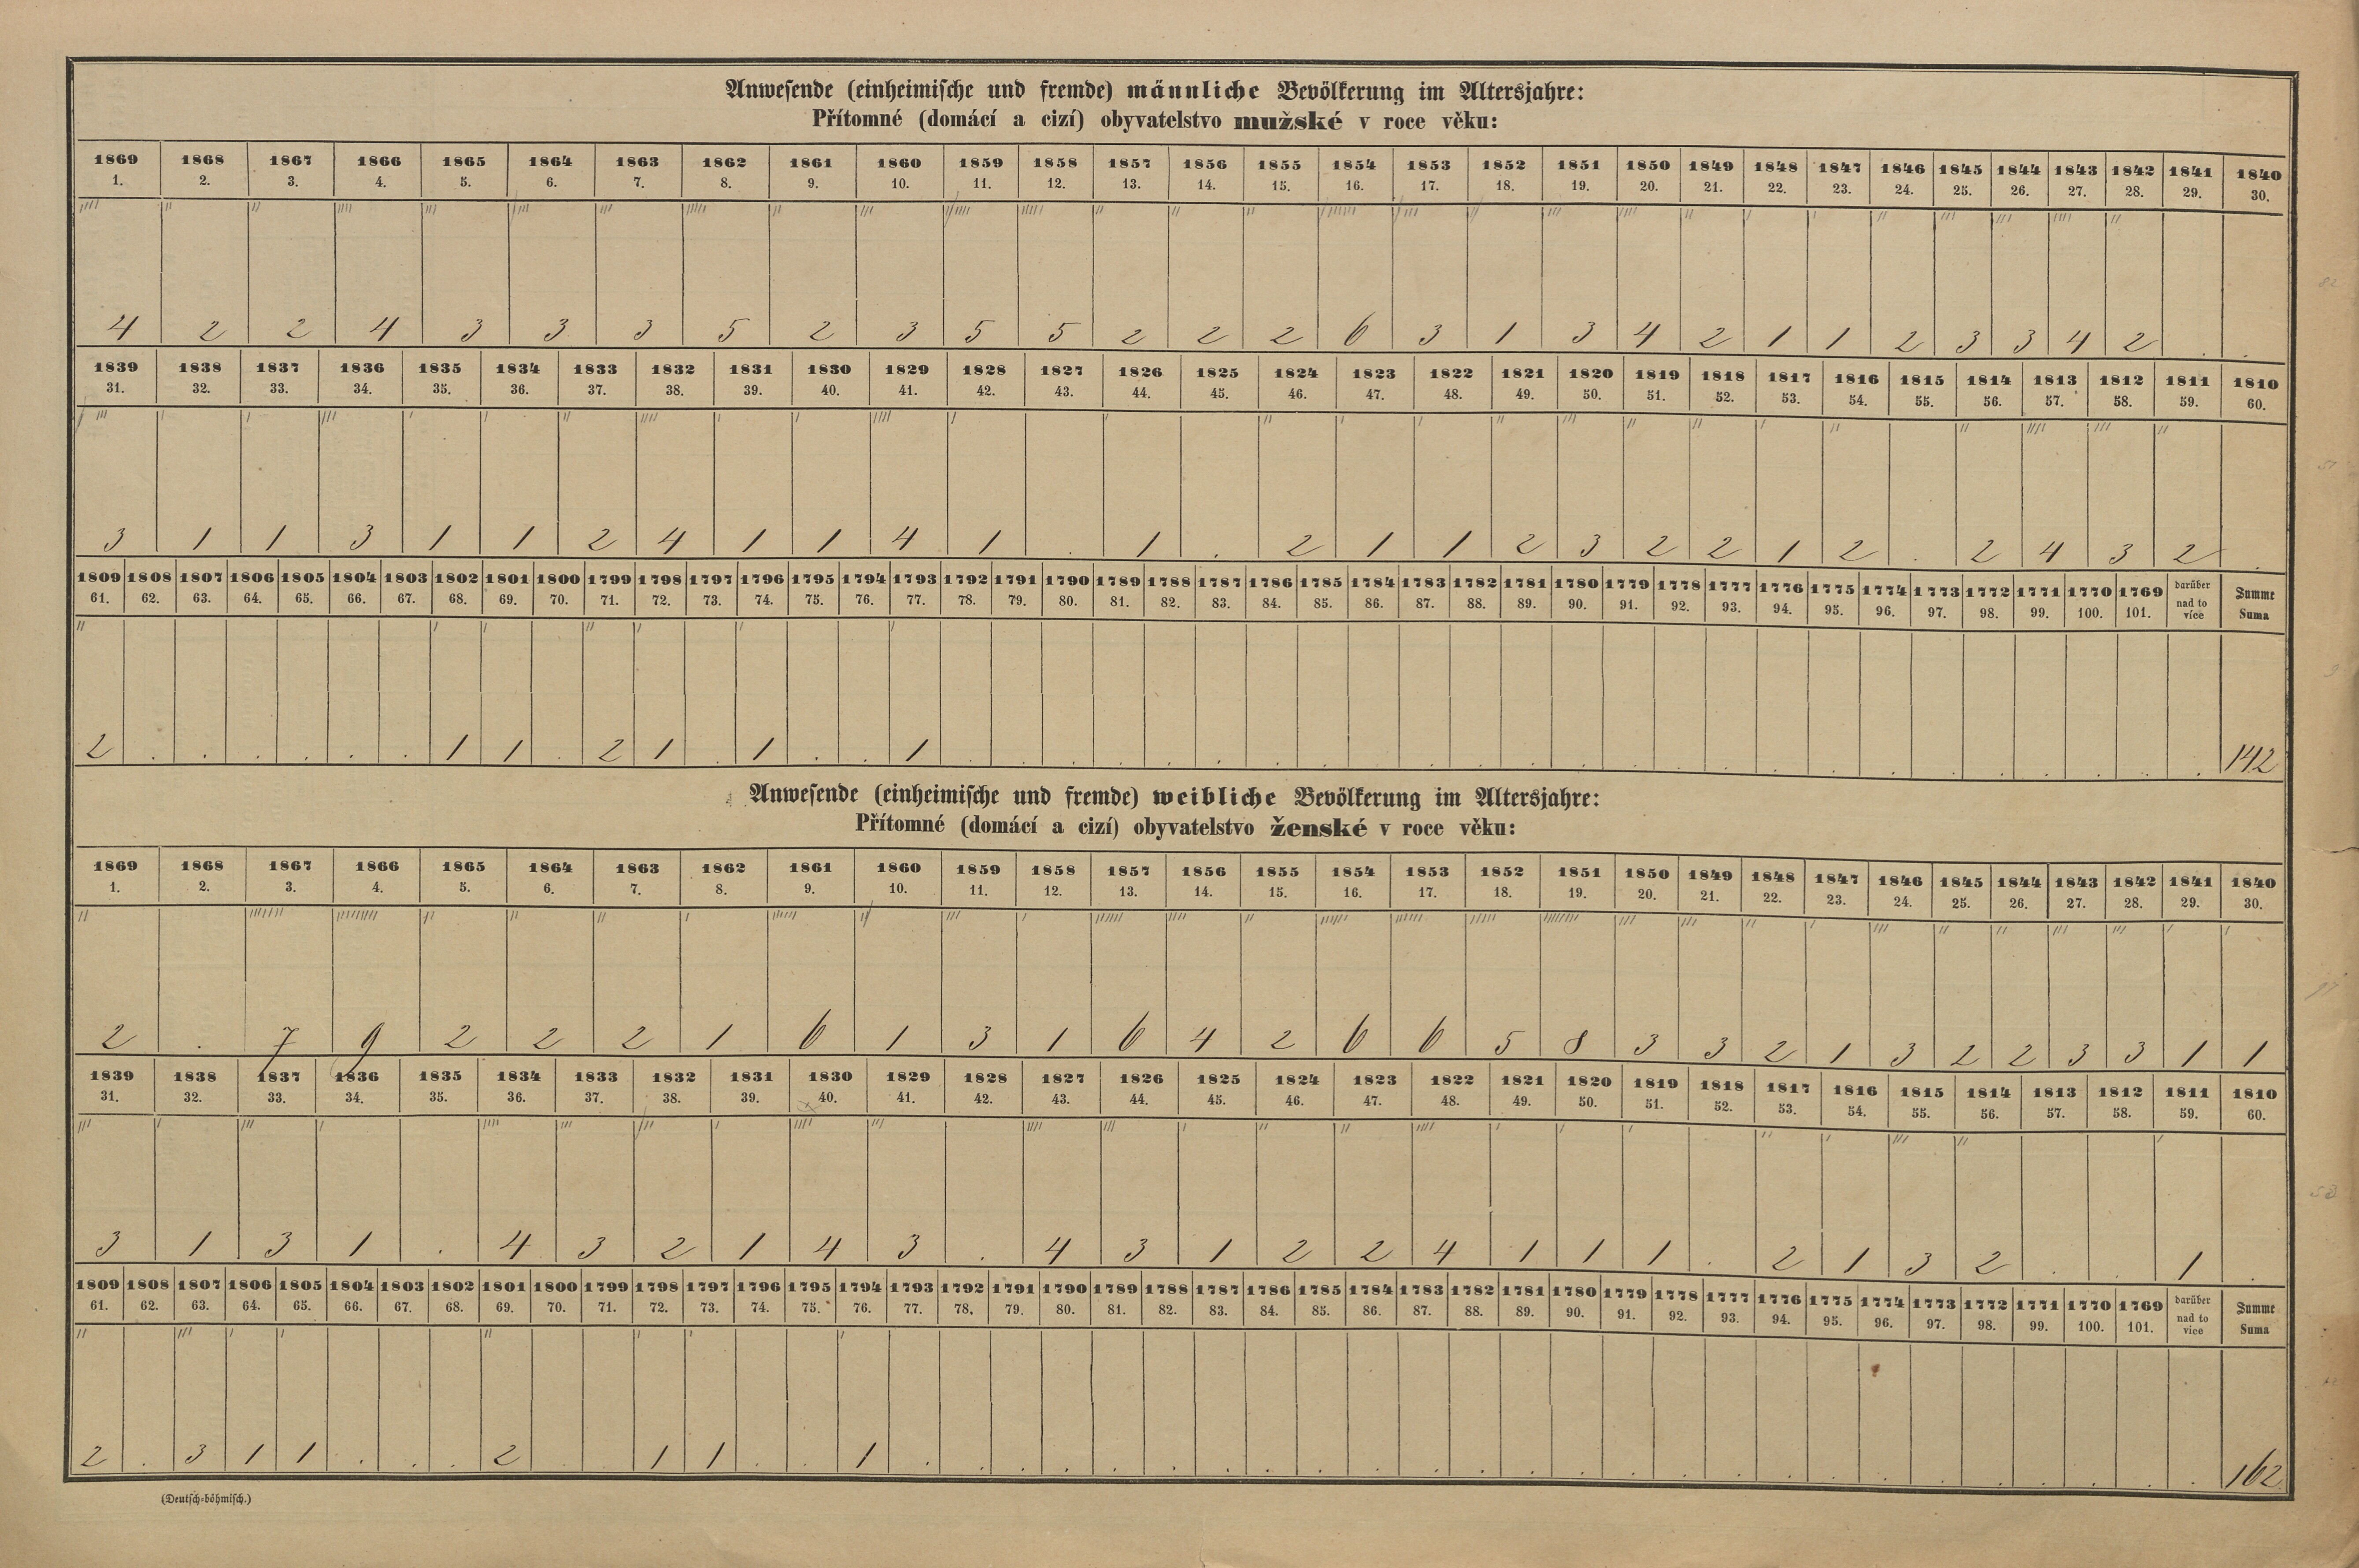 Anwesende (einheimische und fremde) männliche Bevölkerung im Altersjahre:
Přítomné (domácí a cizí) obyvatelstvo mužské v roce věku:
1869 1868 1867 1866 1865 1864 1863 1862 1861 1860 1859 1858 1857 1856 1855 1854 1853 1852 1851 1850 1849 1848 1847 1846 1845 1844 1843 1842 1841 1840
1. 2. 3. 4. 5. 6. 7. 8. 9. 10. 11. 12. 13. 14. 15. 16. 17. 18. 19. 20. 21. 22. 23. 24. 25. 26. 27. 28. 29. 30.
4 2 2 4 3 3 3 5 2 3 5 5 2 2 2 6 3 1 3 4 2 1 1 2 3 3 4 2 . .
1839 1838 1837 1836 1835 1834 1833 1832 1831 1830 1829 1828 1827 1826 1825 1824 1823 1822 1821 1820 1819 1818 1817 1816 1815 1814 1813 1812 1811 1810
31. 32. 33. 34. 35. 36. 37. 38. 39. 40. 41. 42. 43. 44. 45. 46. 47. 48. 49. 50. 51. 52. 53. 54. 55. 56. 57. 58. 59. 60.
3 1 1 3 1 1 2 4 1 1 4 1 . 1 . 2 1 1 2 3 2 2 1 2 . 2 4 3 2 .
1809 1808 1807 1806 1805 1804 1803 1802 1801 1800 1799 1798 1797 1796 1795 1794 1793 1792 1791 1790 1789 1788 1787 1786 1785 1784 1783 1782 1781 1780 1779 1778 1777 1776 1775 1774 1773 1772 1771 1770 1769 darüber Summe
61. 62. 63. 64. 65. 66. 67. 68. 69. 70. 71. 72. 73. 74. 75. 76. 77. 78. 79. 80. 81. 82. 83. 84. 85. 86. 87. 88. 89. 90. 91. 92. 93. 94. 95. 96. 97. 98. 99. 100. 101. nad to více Suma
2 . . . . . . 1 1 . 2 1 . 1 . . 1 . . . . . . . . . . . . . . . . . . . . . . . . . 142
Anwesende (einheimische und fremde) weibliche Bevölkerung im Altersjahre:
Přítomné (domácí a cizí) obyvatelstvo ženské v roce věku:
1869 1868 1867 1866 1865 1864 1863 1862 1861 1860 1859 1858 1857 1856 1855 1854 1853 1852 1851 1850 1849 1848 1847 1846 1845 1844 1843 1842 1841 1840
1. 2. 3. 4. 5. 6. 7. 8. 9. 10. 11. 12. 13. 14. 15. 16. 17. 18. 19. 20. 21. 22. 23. 24. 25. 26. 27. 28. 29. 30.
2 . 7 9 2 2 2 1 6 1 3 1 6 4 2 6 6 5 8 3 3 2 1 3 2 2 3 3 1 1
1839 1838 1837 1836 1835 1834 1833 1832 1831 1830 1829 1828 1827 1826 1825 1824 1823 1822 1821 1820 1819 1818 1817 1816 1815 1814 1813 1812 1811 1810
31. 32. 33. 34. 35. 36. 37. 38. 39. 40. 41. 42. 43. 44. 45. 46. 47. 48. 49. 50. 51. 52. 53. 54. 55. 56. 57. 58. 59. 60.
3 1 3 1 . 4 3 2 1 4 3 . 4 3 1 2 2 4 1 1 1 . 2 1 3 2 . . 1 .
1809 1808 1807 1806 1805 1804 1803 1802 1801 1800 1799 1798 1797 1796 1795 1794 1793 1792 1791 1790 1789 1788 1787 1786 1785 1784 1783 1782 1781 1780 1779 1778 1777 1776 1775 1774 1773 1772 1771 1770 1769 darüber Summe
61. 62. 63. 64. 65. 66. 67. 68. 69. 70. 71. 72. 73. 74. 75. 76. 77. 78. 79. 80. 81. 82. 83. 84. 85. 86. 87. 88. 89. 90. 91. 92. 93. 94. 95. 96. 97. 98. 99. 100. 101. nad to více Suma
2 . 3 1 1 . . . 2 . . 1 1 . . 1 . . . . . . . . . . . . . . . . . . . . . . . . . . 162
(Deutsch-böhmisch.)